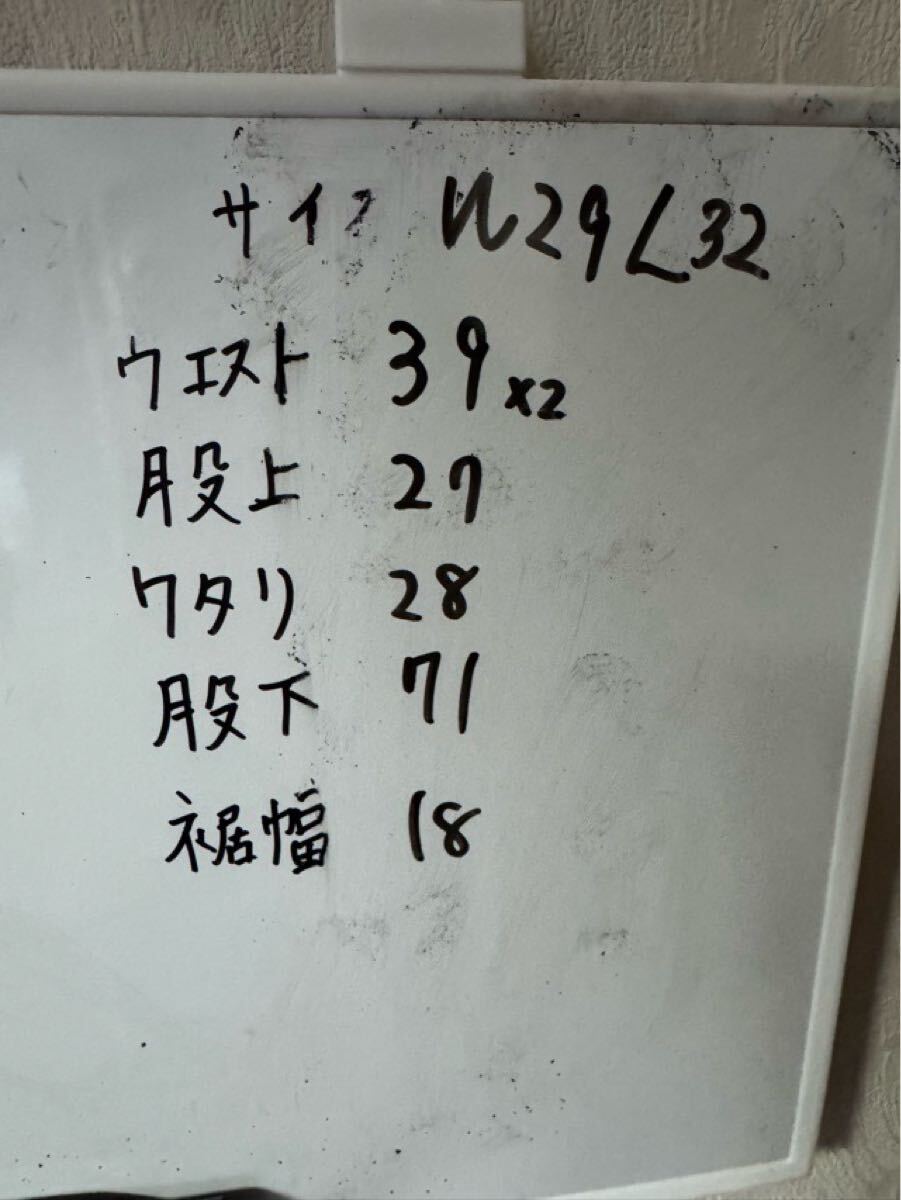 サイズ W29 L32
ウエスト 39 x2
股上 27
ワタリ 28
股下 71
裾幅 18